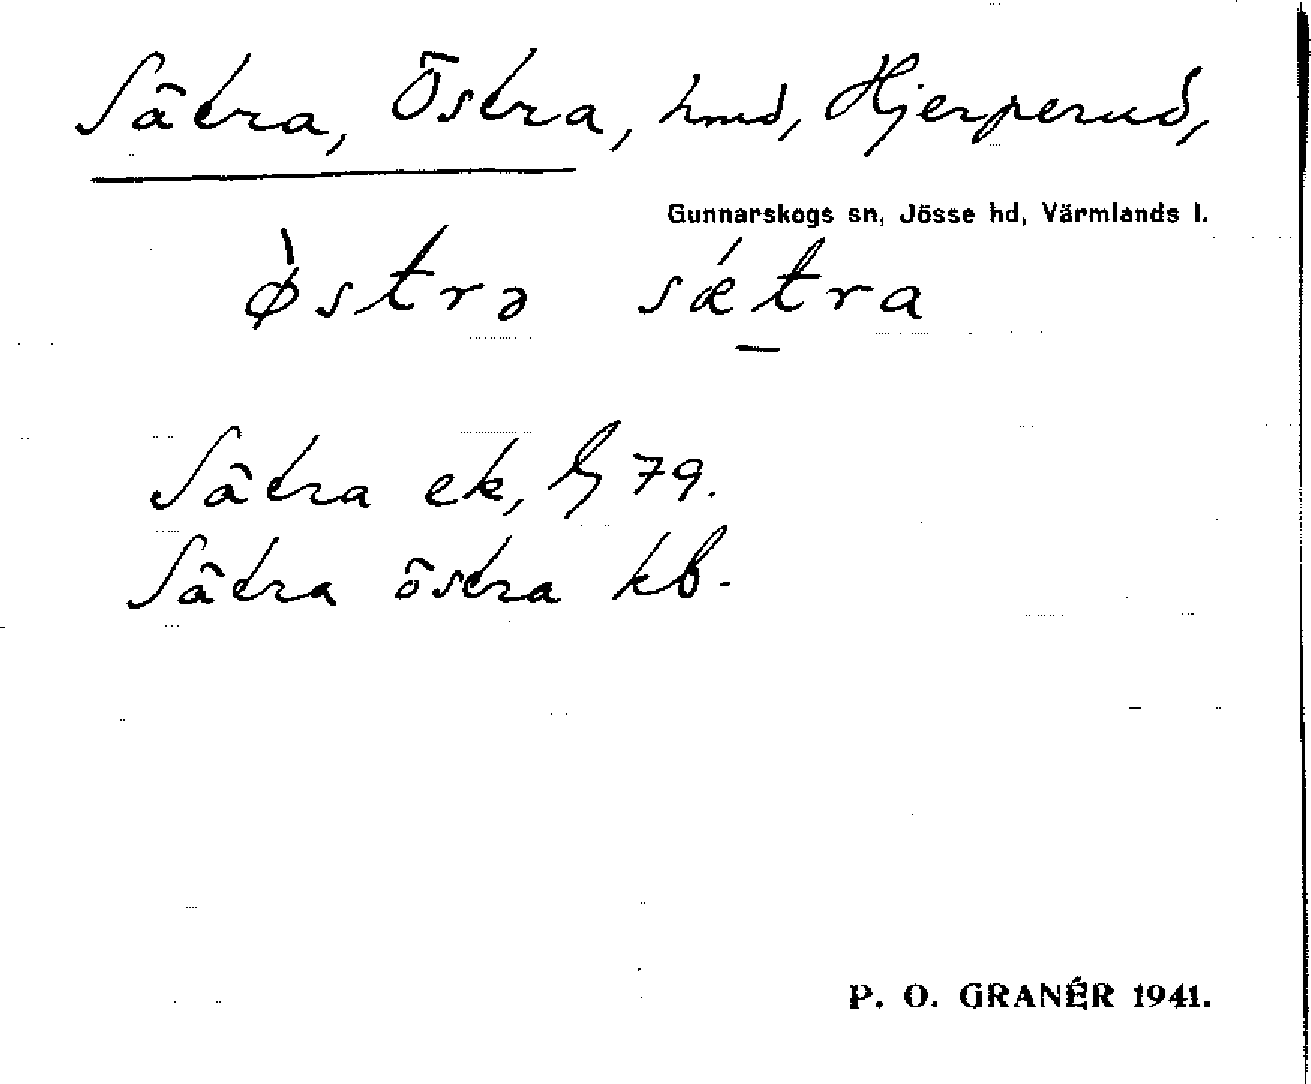 Sätra, Östra, hmd, Hjerperud,
Gunnarskogs sn, Jösse hd, Värmlands l.
ø̀strə sǽtra
Sätra ek, Lj 79.
Sätra östra kb.
P. O. GRANÉR 1941.